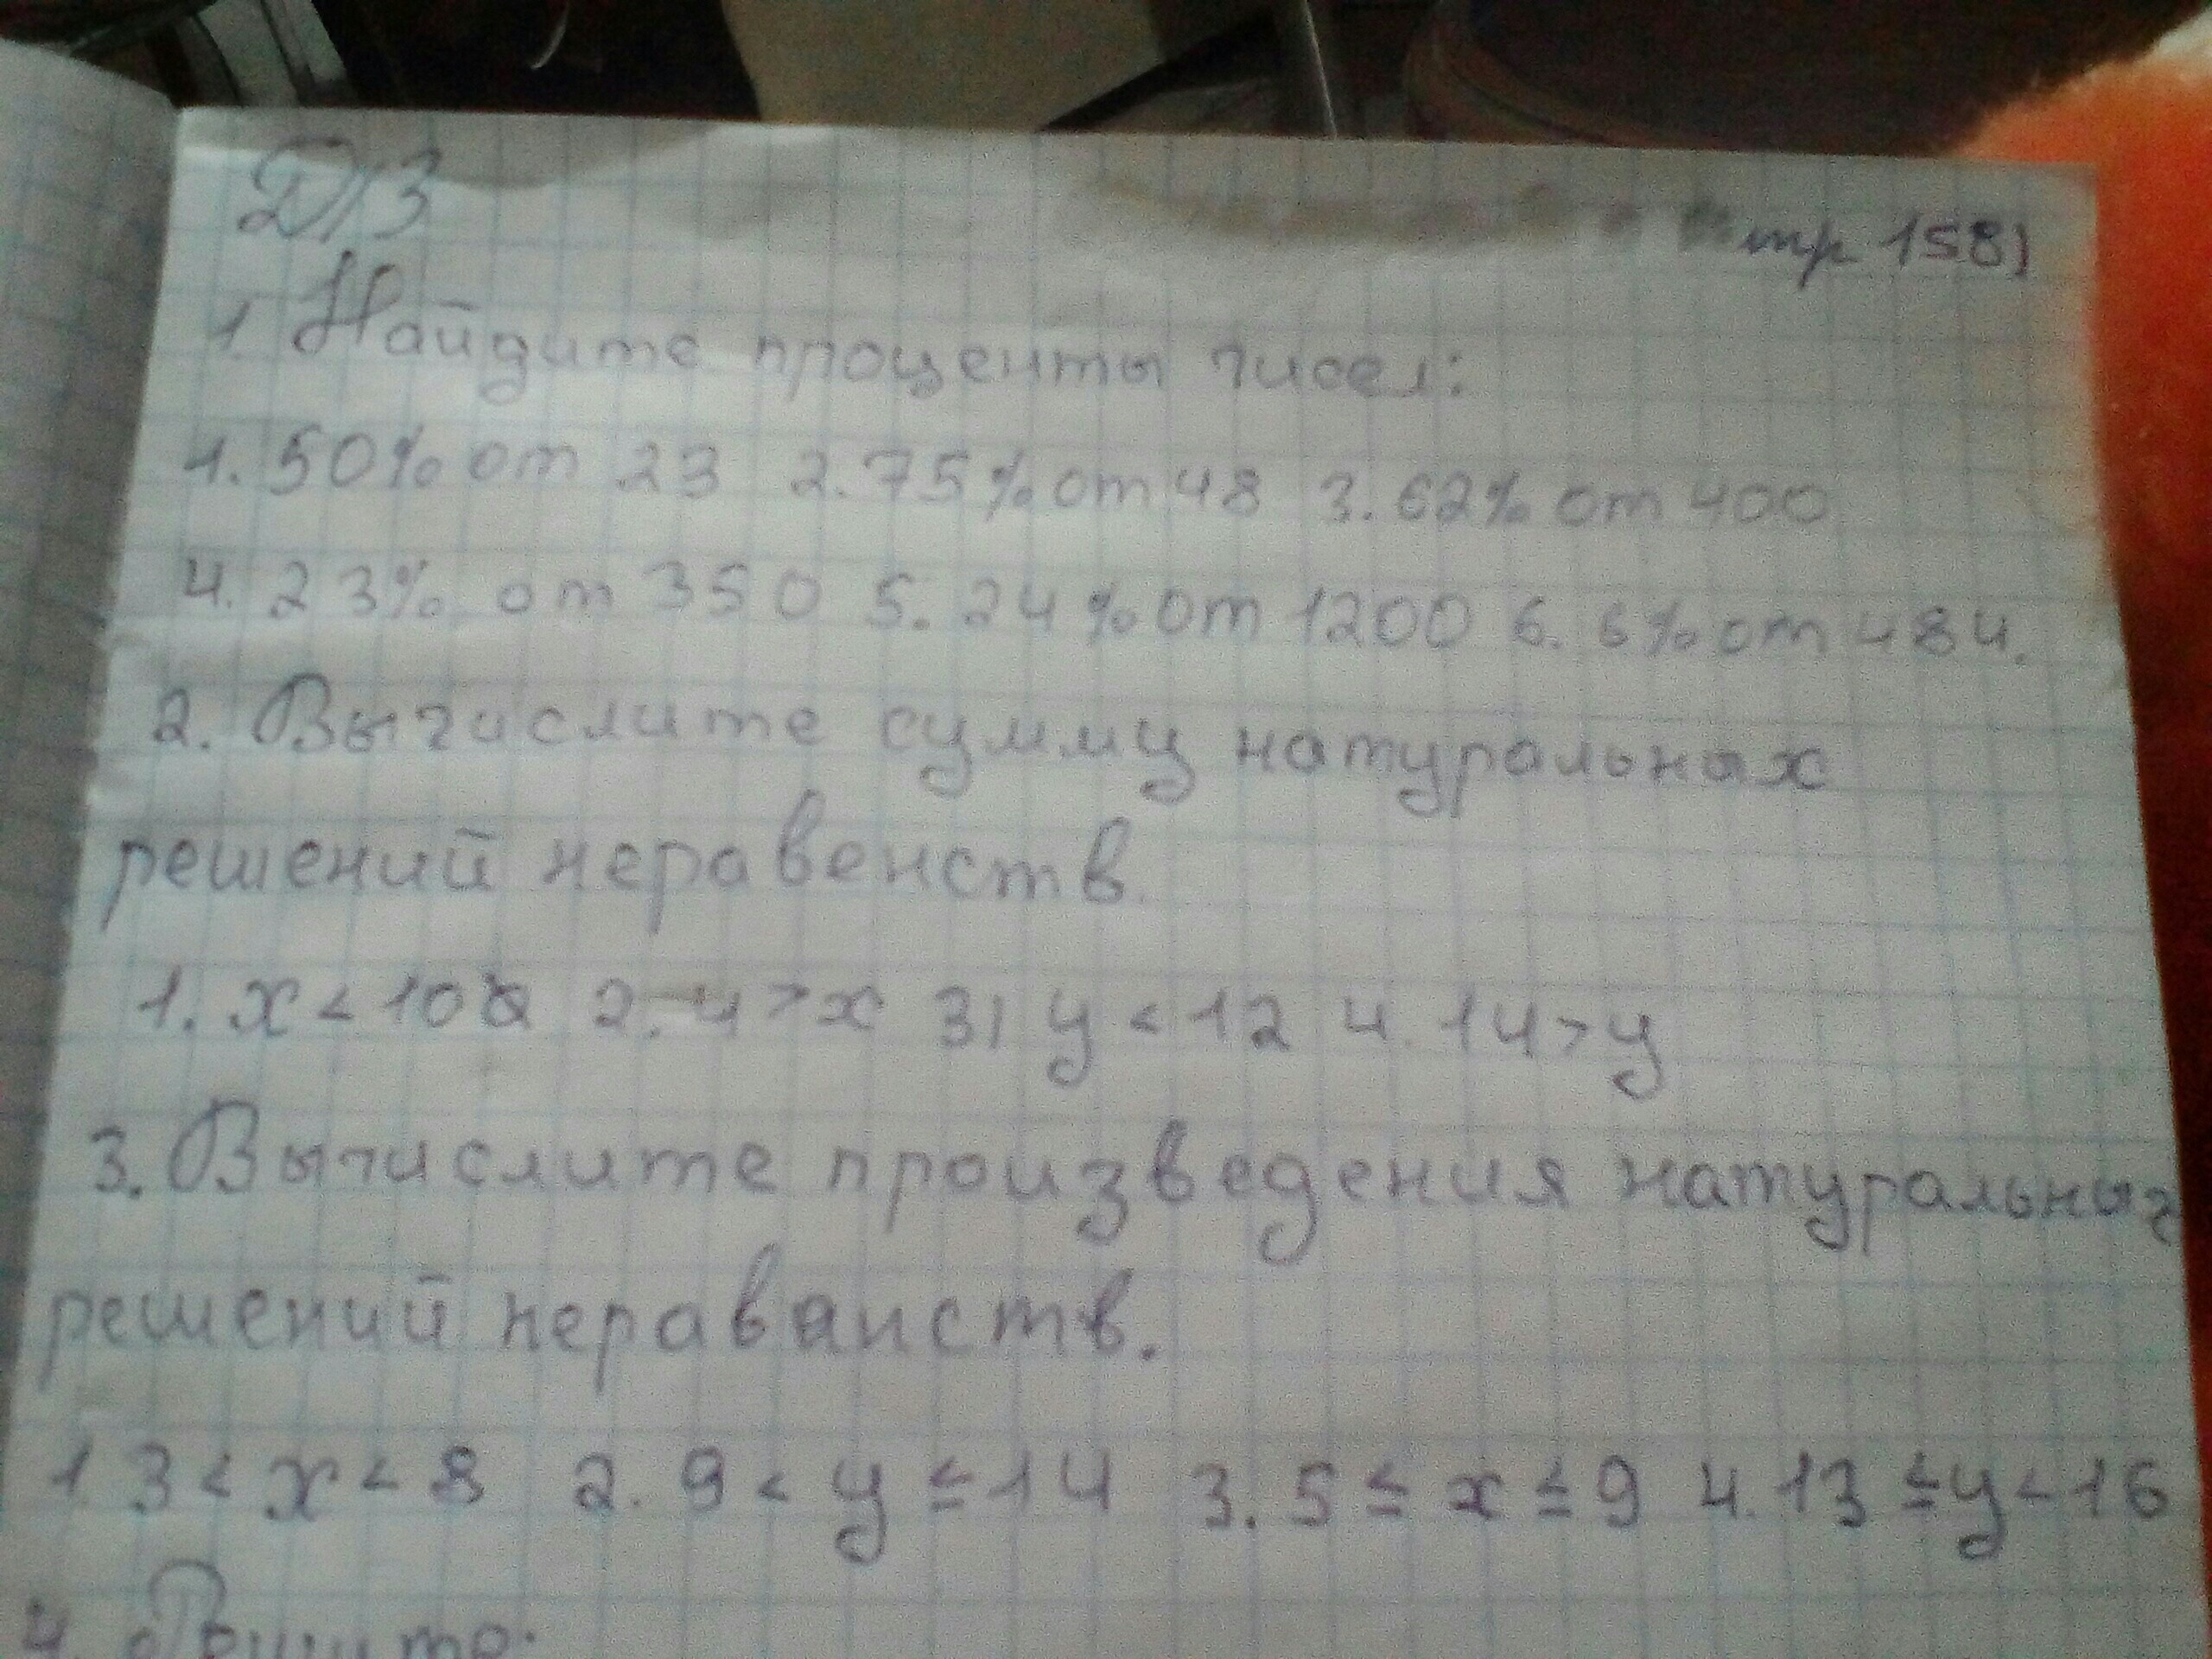 Д/З
стр 158)
1 Найдите проценты чисел:
1. 50% от 23 2. 75% от 48 3. 62% от 400
4. 23% от 350 5. 24% от 1200 6. 6% от 484.
2. Вычислите сумму натуральных
решений неравенств.
1. x < 10 2. 4 > x 3) y < 12 4. 14 > y
3. Вычислите произведения натуральных
решений нераванств.
1 3 < x < 8 2. 9 < y ≤ 14 3. 5 ≤ x ≤ 9 4. 13 ≤ y < 16
4. Решите: